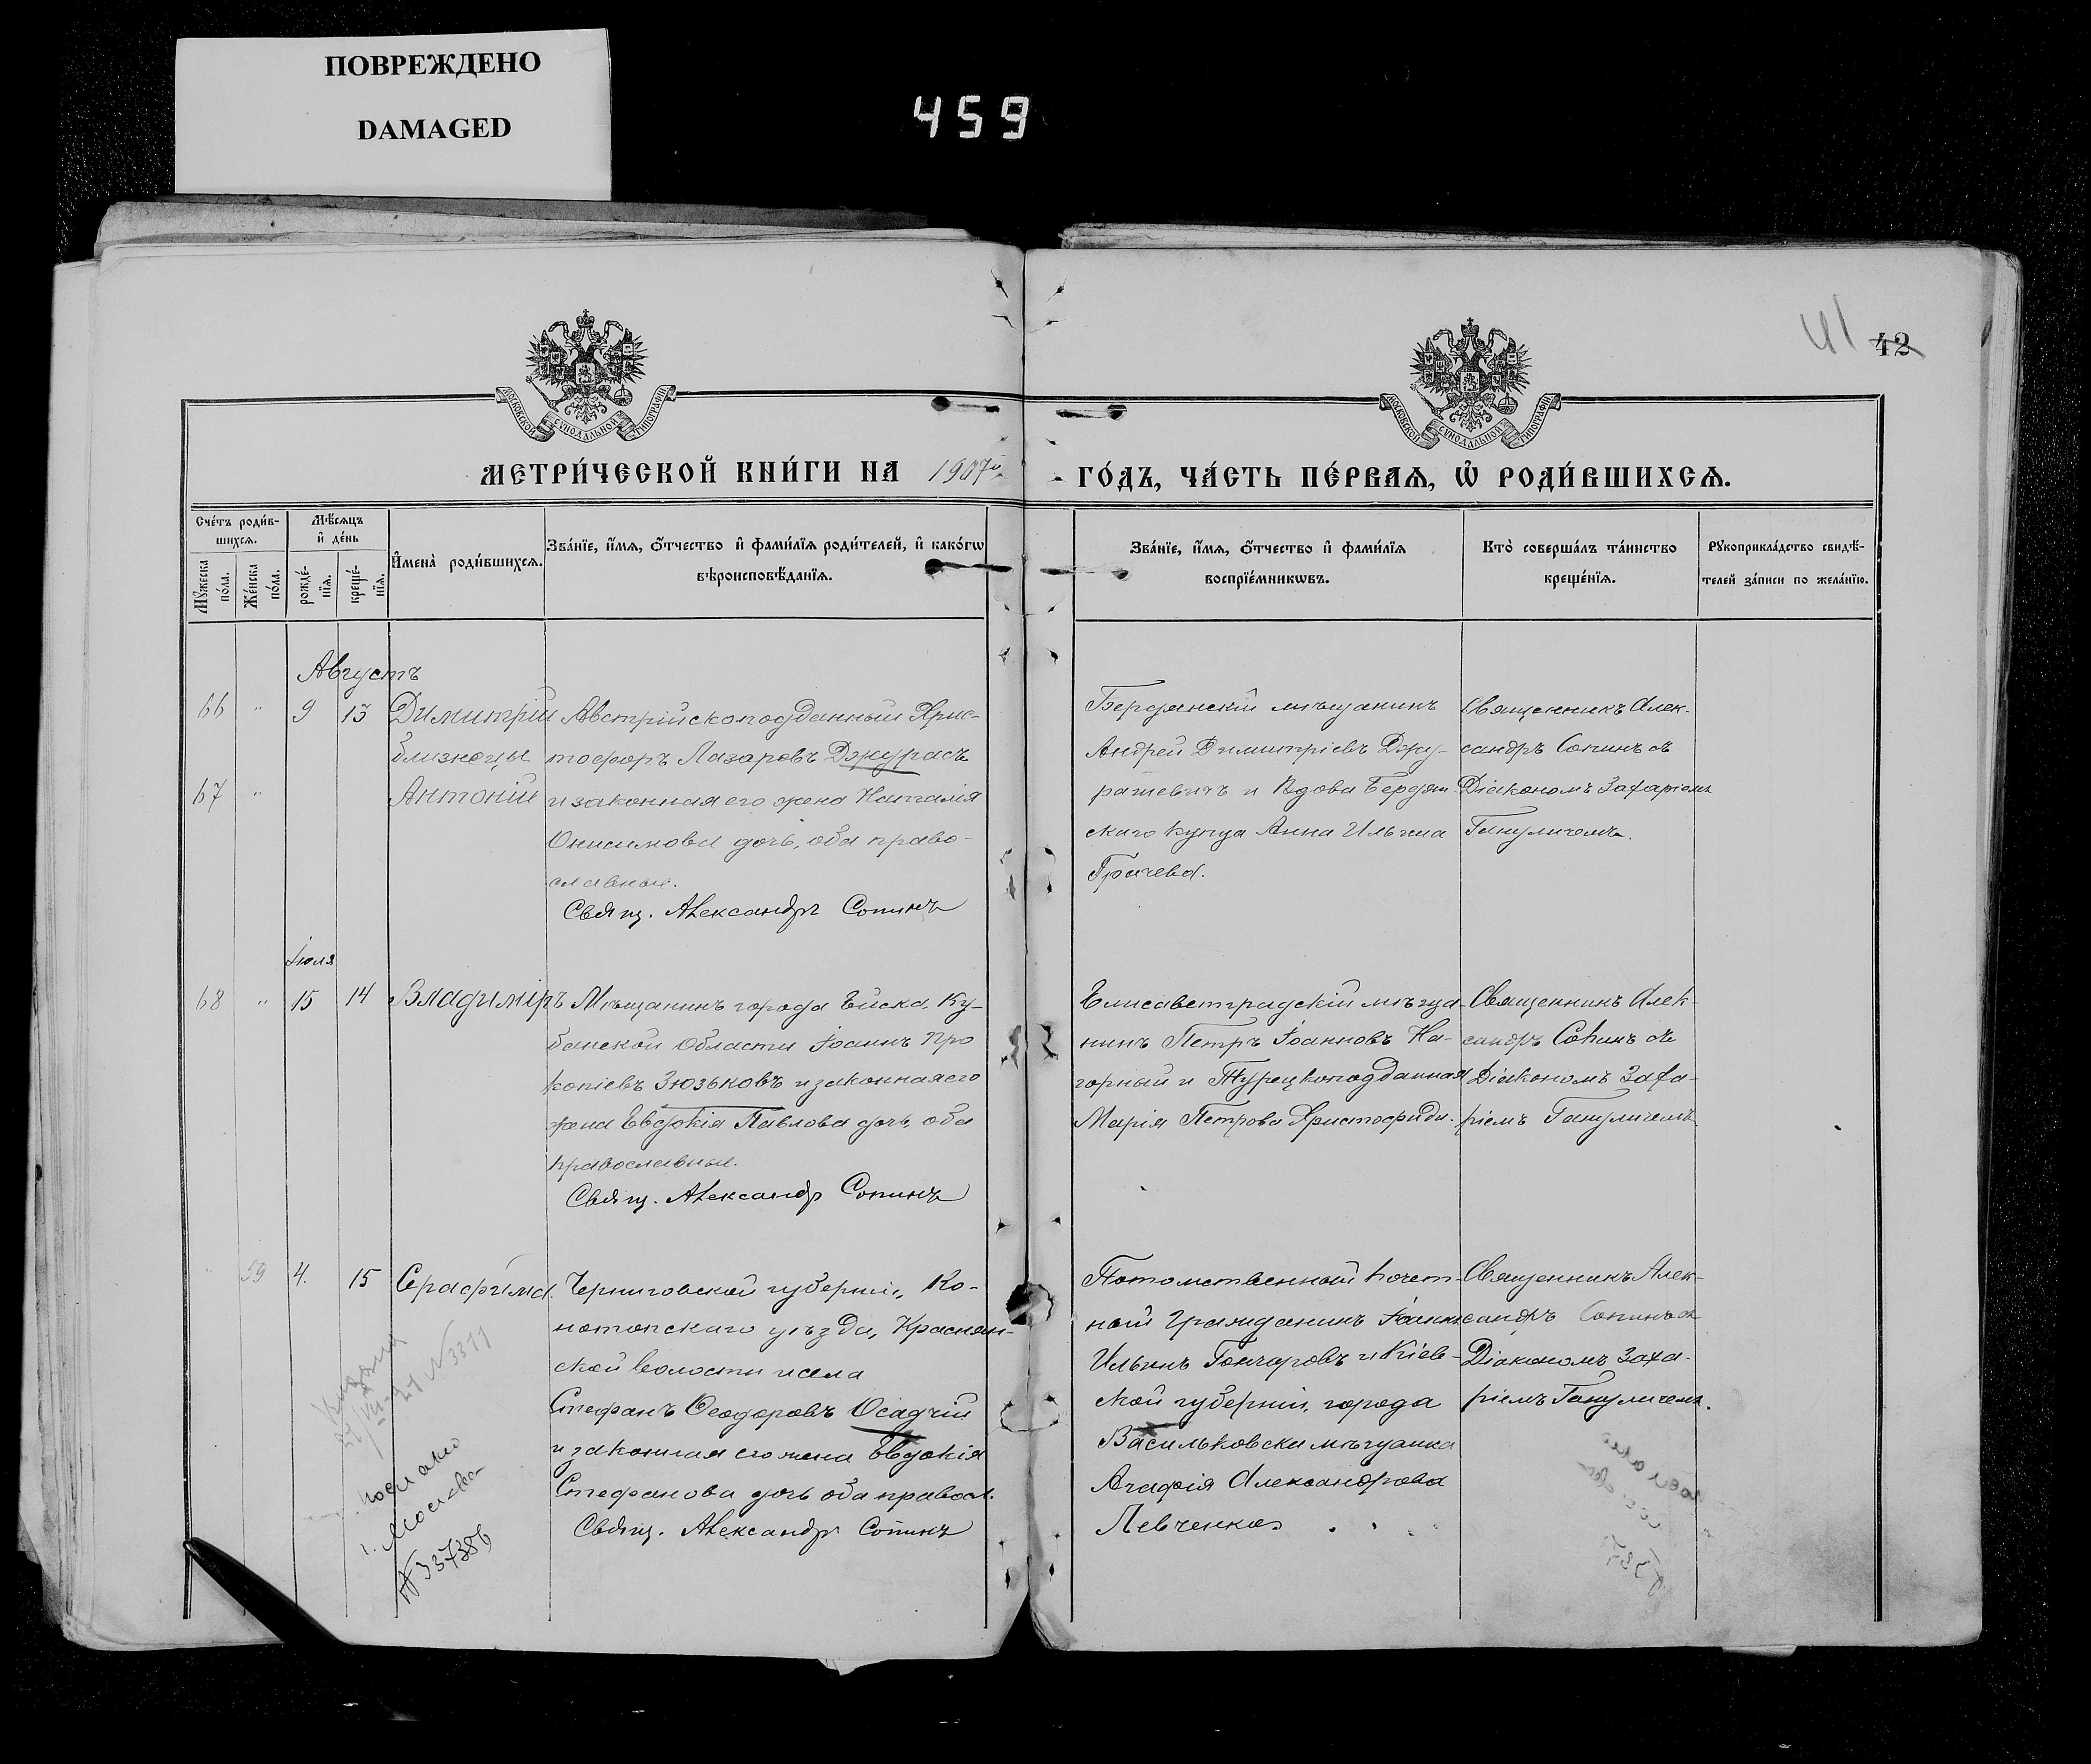 ПОВРЕЖДЕНО
DAMAGED
459
41 42
МОСКОВСКОЙ СѴНОДАЛЬНОЙ ТИПОГРАФІИ
МОСКОВСКОЙ СѴНОДАЛЬНОЙ ТИПОГРАФІИ
МЕТРИ́ЧЕСКОЙ КНИ́ГИ НА 1907й
ГО́ДЪ, ЧА́СТЬ ПЕ́РВАѦ, Ѡ҆ РОДИ́ВШИХСѦ.
Сче́тъ роди́в-
шихсѧ.
Мꙋ́жеска по́ла.
Же́нска по́ла.
Мѣ́сѧцъ
и҆ де́нь
рожде́-нїѧ.
креще́-нїѧ.
И҆мена̀ роди́вшихсѧ.
Зва́нїе, и҆́мѧ, ѻ҆́тчество и҆ фами́лїѧ роди́телей, и҆ како́гѡ
вѣроисповѣ́данїѧ.
Зва́нїе, и҆́мѧ, ѻ҆́тчество и҆ фами́лїѧ
воспрїе́мникѡвъ.
Кто̀ соверша́лъ та́инство
креще́нїѧ.
Рꙋкоприкла́дство свидѣ́-
телей за́писи по жела́нїю.
Августъ
66 " 9 13 Димитрій
близнецы
67 " Антоній
Австрійскоподданный Хрис-
тофоръ Лазаровъ Джурасъ
и законная его жена Наталія
Онисимова дочь, оба право-
славные.
Свящ. Александръ Сопинъ
Бердянскій мѣщанинъ
Андрей Димитріевъ Джу-
рашевичъ и Вдова Бердян
скаго купца Анна Ильина
Грачева.
Священникъ Алек-
сандръ Сопинъ съ
Діакономъ Захаріемъ
Гануличемъ.
Іюля
68 " 15 14 Владиміръ
Мѣщанинъ города Ейска, Ку-
банской Области Іоаннъ Про
копіевъ Зюзьковъ и законная его
жена Евдокія Павлова дочь, оба
православные.
Свящ. Александр Сопинъ
Елисаветградскій мѣща-
нинъ Петръ Іоанновъ На-
горный и Турецкоподданная
Марія Петрова Христофиди.
Священникъ Алек-
сандръ Сопинъ съ
Діакономъ Заха-
ріемъ Гануличемъ
" 59 4. 15 Серафима.
Черниговской губерніи, Ко-
нотопскаго уѣзда, Краснян-
ской волости и села
Стефанъ Ѳеодоровъ Осадчій
и законная его жена Евдокія
Стефанова дочь оба правосл.
Свящ. Александр Сопинъ
Потомственный почет-
ный гражданинъ Іоаннъ
Ильинъ Гончаровъ и Кіев-
ской губерніи, города
Васильковска мѣщанка
Агафія Александрова
Левченко
Священникъ Алек-
сандръ Сопинъ съ
Діакономъ Заха-
ріемъ Гануличемъ.
N 3311
послано
г. Москва
N 337386